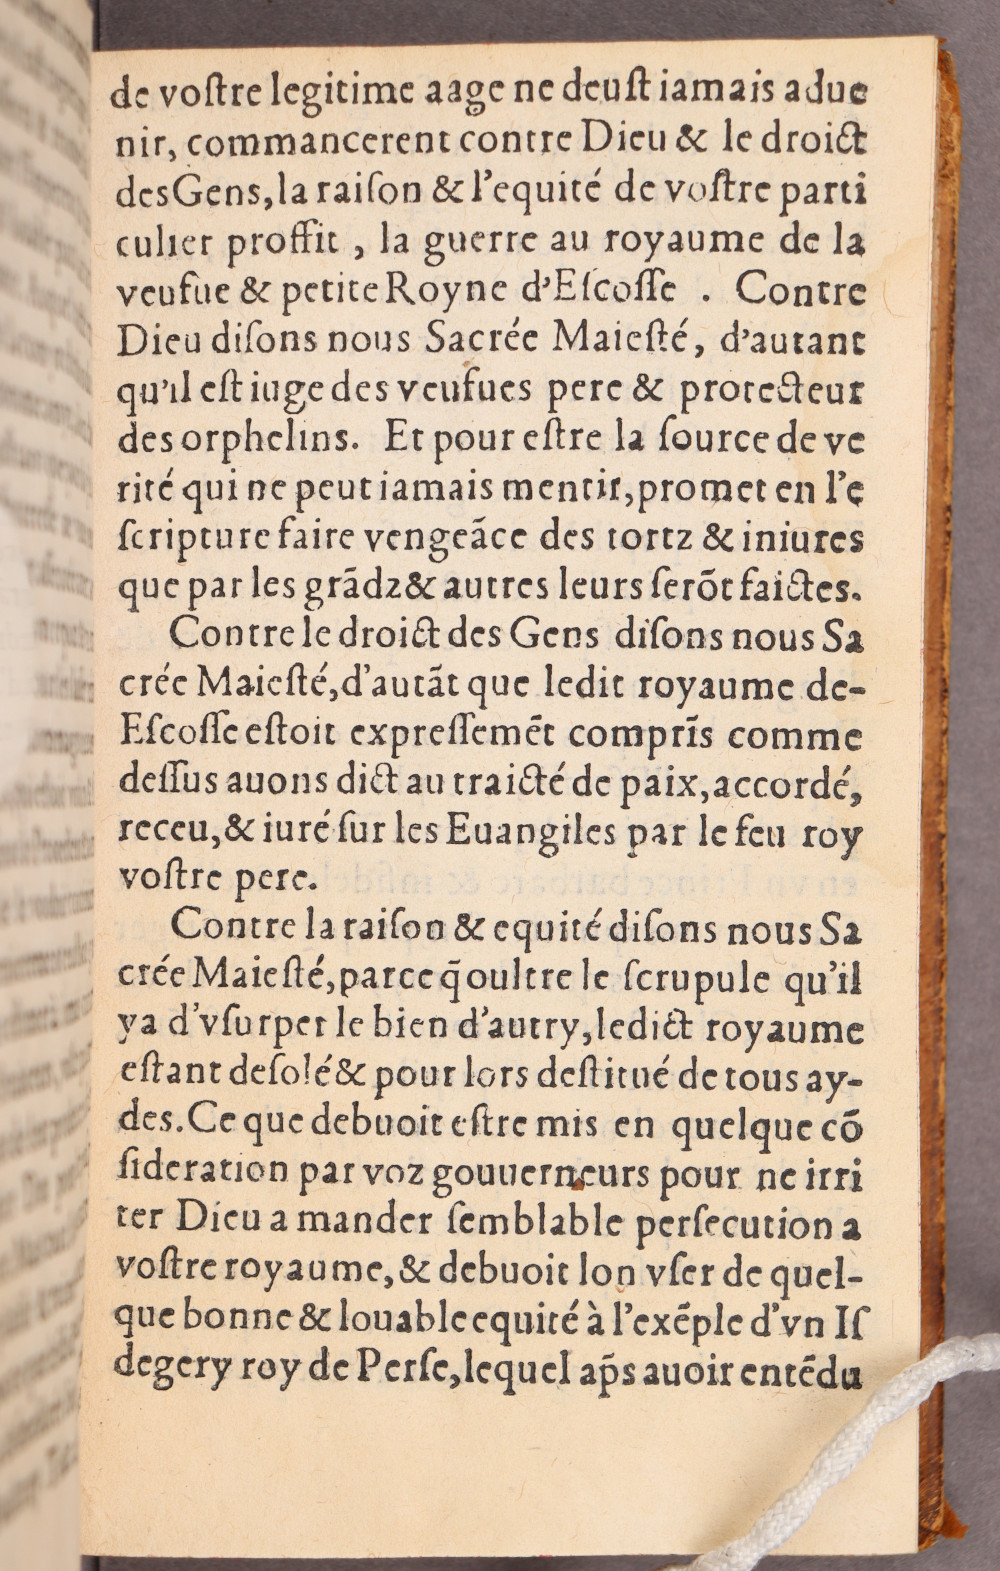 de voſtre legitime aage ne deuſt iamais adue
nir, commancerent contre Dieu & le droict
des Gens, la raiſon & l'equité de voſtre parti
culier proffit , la guerre au royaume de la
veufue & petite Royne d'Eſcoſſe . Contre
Dieu diſons nous Sacrée Maieſté, d'autant
qu'il eſt iuge des veufues pere & protecteur
des orphelins. Et pour eſtre la ſource de ve
rité qui ne peut iamais mentir, promet en l'e
ſcripture faire vengeãce des tortz & iniures
que par les grãdz & autres leurs ſerõt faictes.
Contre le droict des Gens diſons nous Sa
crée Maieſté, d'autãt que ledit royaume de-
Eſcoſſe eſtoit expreſſemẽt compris̃ comme
deſſus auons dict au traicté de paix, accordé,
receu, & iuré ſur les Euangiles par le feu roy
voſtre pere.
Contre la raiſon & equité diſons nous Sa
crée Maieſté, parce q̃ oultre le ſcrupule qu'il
ya d'vſurper le bien d'autry, ledict royaume
eſtant deſolé & pour lors deſtitué de tous ay-
des. Ce que debuoit eſtre mis en quelque cõ
ſideration par voz gouuerneurs pour ne irri
ter Dieu a mander ſemblable perſecution a
voſtre royaume, & debuoit lon vſer de quel-
que bonne & louable equité à l'exẽple d'vn Iſ
degery roy de Perſe, lequel ap̃s auoir entẽdu